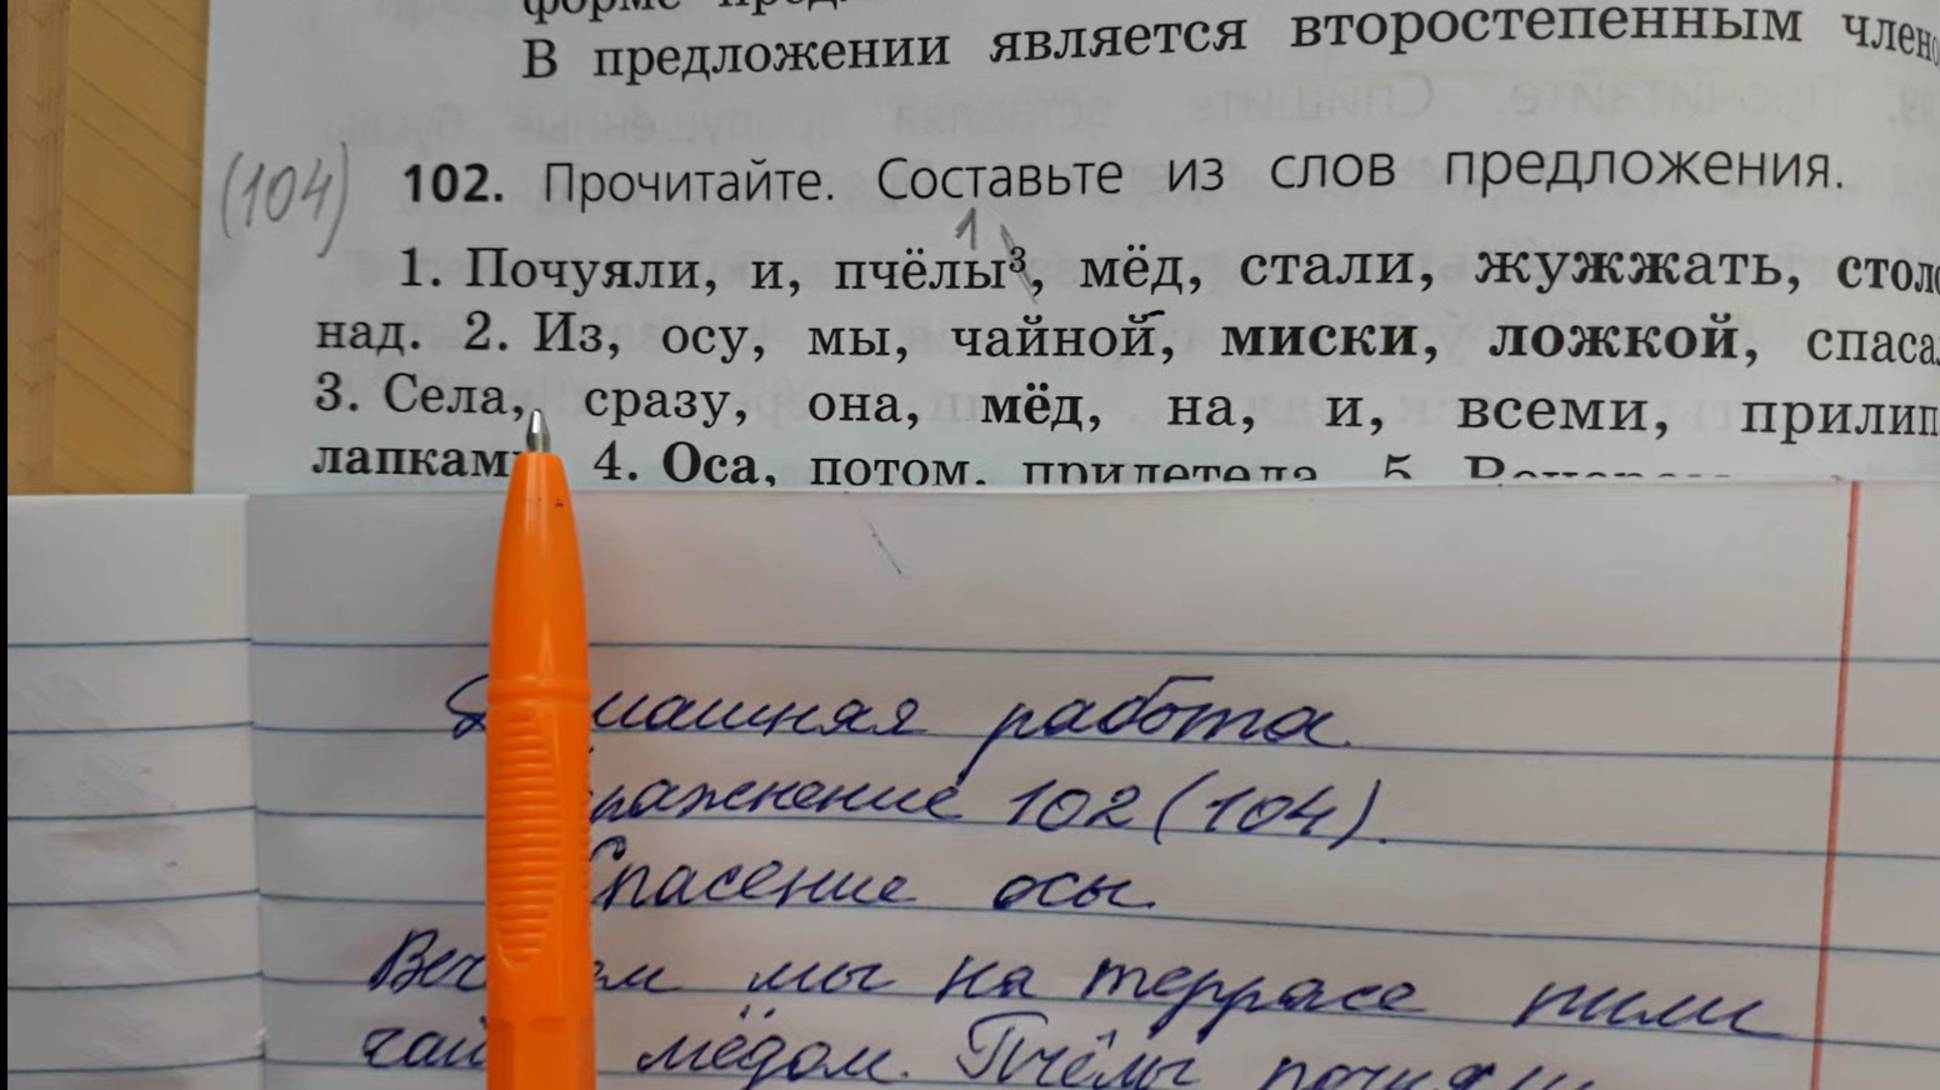 В предложении является второстепенным
(104) 102. Прочитайте. Составьте из слов предложения.
1
1. Почуяли, и, пчёлы³, мёд, стали, жужжать,
над. 2. Из, осу, мы, чайной, миски, ложкой,
3. Села, сразу, она, мёд, на, и, всеми,
4. Оса, потом, прилетела. 5.
работа
102 (104).
Спасение осы.
мы на террасе пили
мёдом. Пчёлы